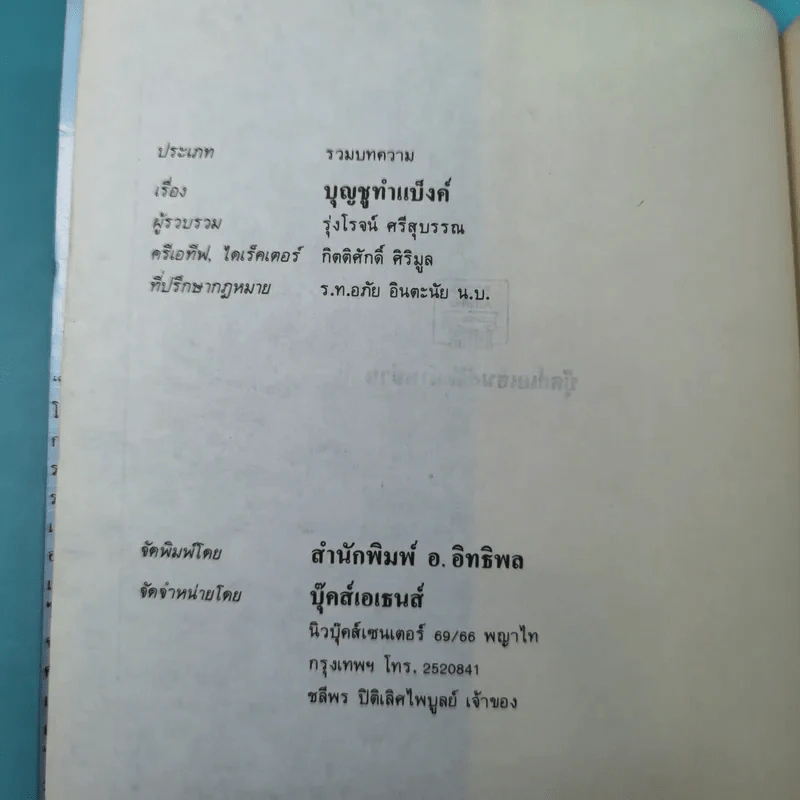 ประเภท รวมบทความ
เรื่อง บุญชูทำแบ็งค์
ผู้รวบรวม รุ่งโรจน์ ศรีสุบรรณ
ครีเอทีฟ, ไดเร็คเตอร์ กิตติศักดิ์ ศิริมูล
ที่ปรึกษากฎหมาย ร.ท.อภัย อินตะนัย น.บ.
จัดพิมพ์โดย สำนักพิมพ์ อ. อิทธิพล
จัดจำหน่ายโดย บุ๊คส์เอเธนส์
นิวบุ๊คส์เซนเตอร์ 69/66 พญาไท
กรุงเทพฯ โทร. 2520841
ชลีพร ปิติเลิศไพบูลย์ เจ้าของ